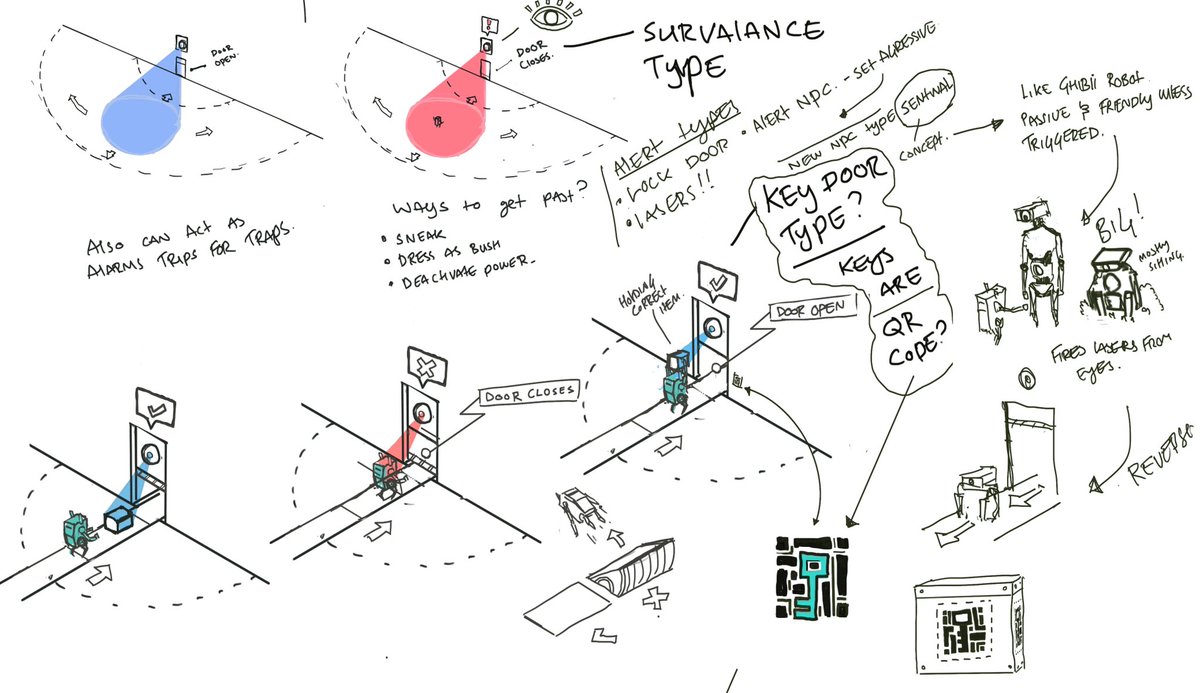 DOOR
OPEN.
!
DOOR
CLOSES.
SURVAIANCE
TYPE
ALSO CAN ACT AS
ALARMS TRIPS FOR TRAPS.
WAYS TO GET PAST?
• SNEAK
• DRESS AS BUSH
• DEACTIVATE POWER-
ALERT TYPES
• LOCK DOOR
• LASERS!!
• ALERT NPC. - SET AGRESSIVE
NEW NPC TYPE SENTINAL
CONCEPT.
LIKE GHIBLI ROBOT
PASSIVE & FRIENDLY UNLESS
TRIGGERED.
KEY DOOR
TYPE?
KEYS
ARE
QR
CODE?
BIG!
MOSTLY
SITTING.
HOLDING
CORRECT
ITEM.
DOOR OPEN!
DOOR CLOSES
FIRED LASERS FROM
EYES.
REVERSE